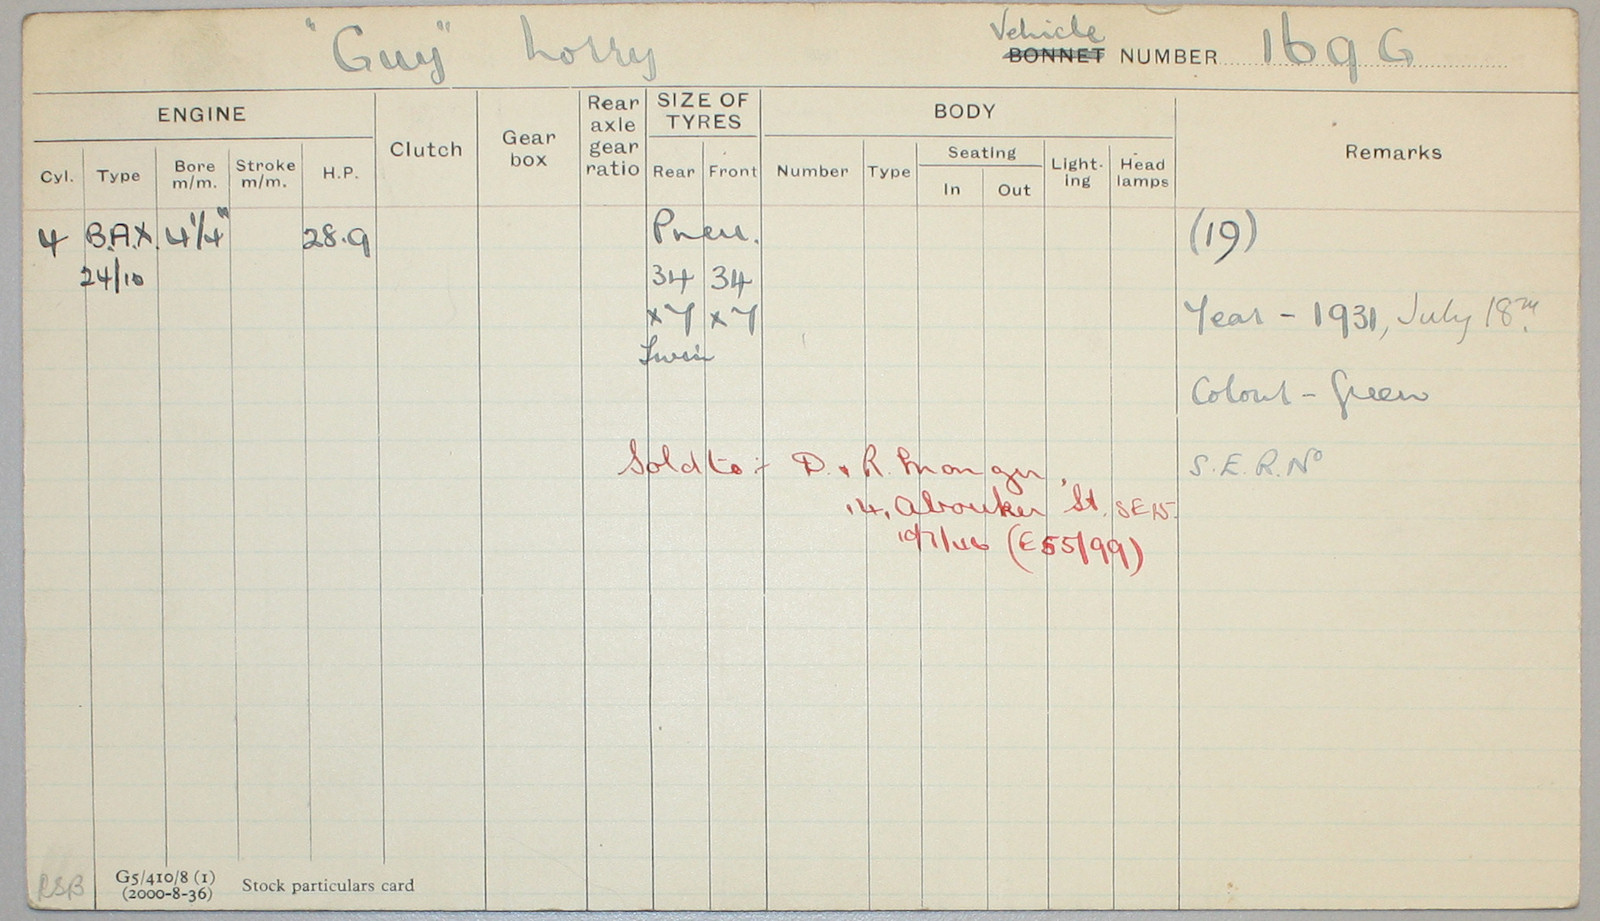 "Guy" Lorry
Vehicle
BONNET NUMBER 169 G
ENGINE
Cyl. Type Bore m/m. Stroke m/m. H.P.
Clutch
Gear box
Rear axle gear ratio
SIZE OF TYRES
Rear Front
BODY
Number Type Seating In Out Light-ing Head lamps
Remarks
4 B.A.X. 4 1/4" 28.9 Pneu. (19)
24/10 34 34
x7 x7 Year - 1931, July 18th.
Twin
Colour - Green
Sold to :- D. & R. Monger S.E.R. No
14, Aboukir St. SE15.
(E55/99)
RSB
G5/410/8 (1)
(2000-8-36)
Stock particulars card